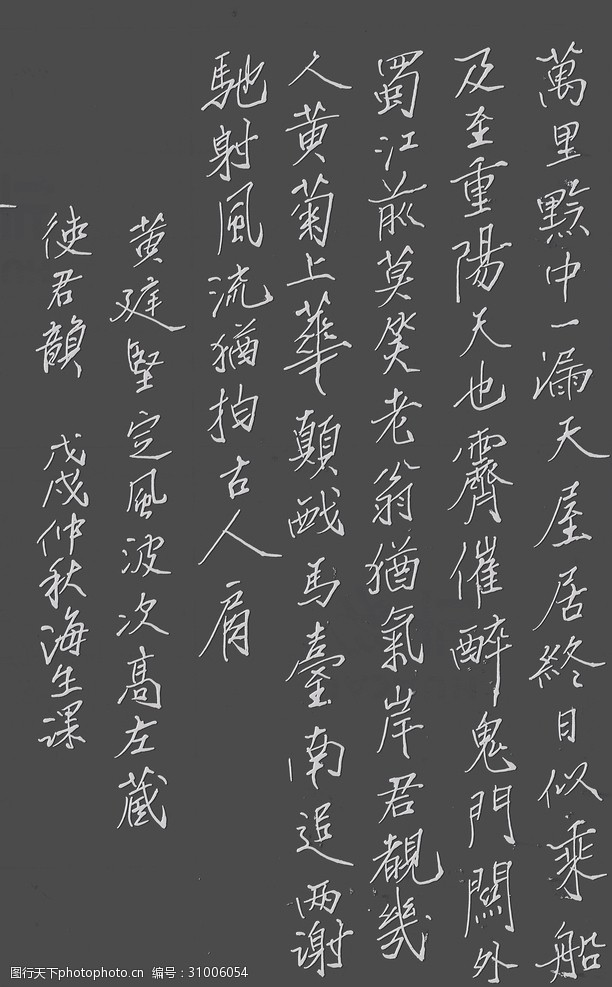 萬里黔中一漏天屋居終日似乘船
及至重陽天也霽催醉鬼門關外
蜀江前莫笑老翁猶氣岸君看幾
人黃菊上華顛戲馬臺南追兩謝
馳射風流猶拍古人肩
黃庭堅定風波次高左藏
使君韻 戊戌仲秋海生課
图行天下photophoto.cn 编号：31006054